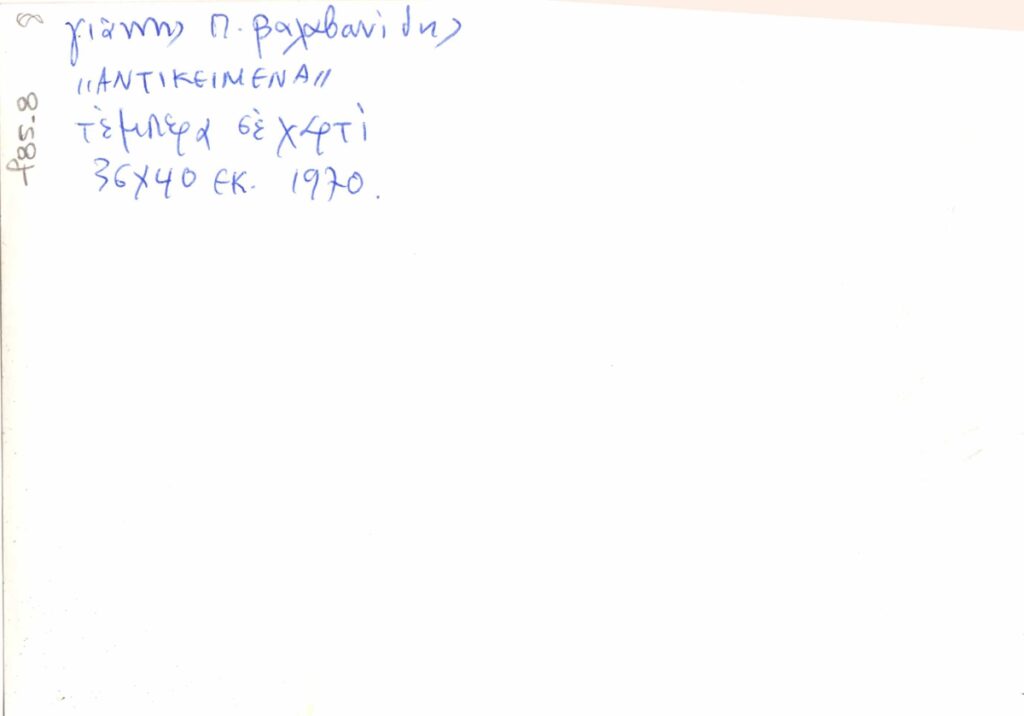 γιάννης Π. βαλαβανίδης
"ΑΝΤΙΚΕΙΜΕΝΑ"
τὲμπερα σὲ χαρτὶ
36X40 εκ. 1970.